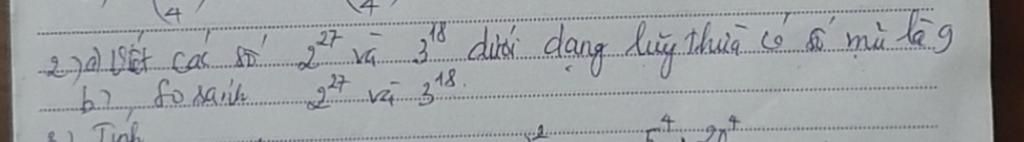 (4 (4
2) a) Viết các số 2^27 và 3^18 dưới dạng luỹ thừa có số mũ là 9
b) So sánh 2^27 và 3^18.
3) Tính
2 5^4 . 20^4